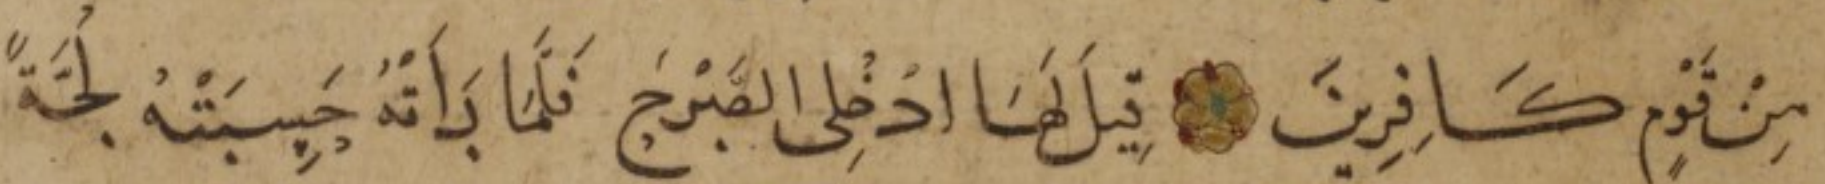 مِنْ قَوْمٍ كَافِرِينَ قِيلَ لَهَا ادْخُلِى الصَّرْحَ فَلَمَّا رَأَتْهُ حَسِبَتْهُ لُجَّةً